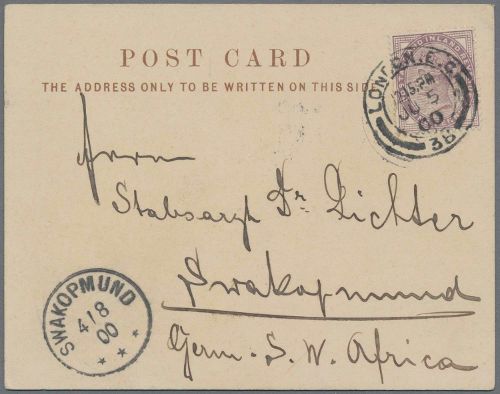 POST CARD
THE ADDRESS ONLY TO BE WRITTEN ON THIS SIDE
LONDON. E.C.
JU 5
00
38
Herrn
Stabsarzt Dr. Richter
Swakopmund
Germ. S. W. Africa
SWAKOPMUND
4/8
00
* * *